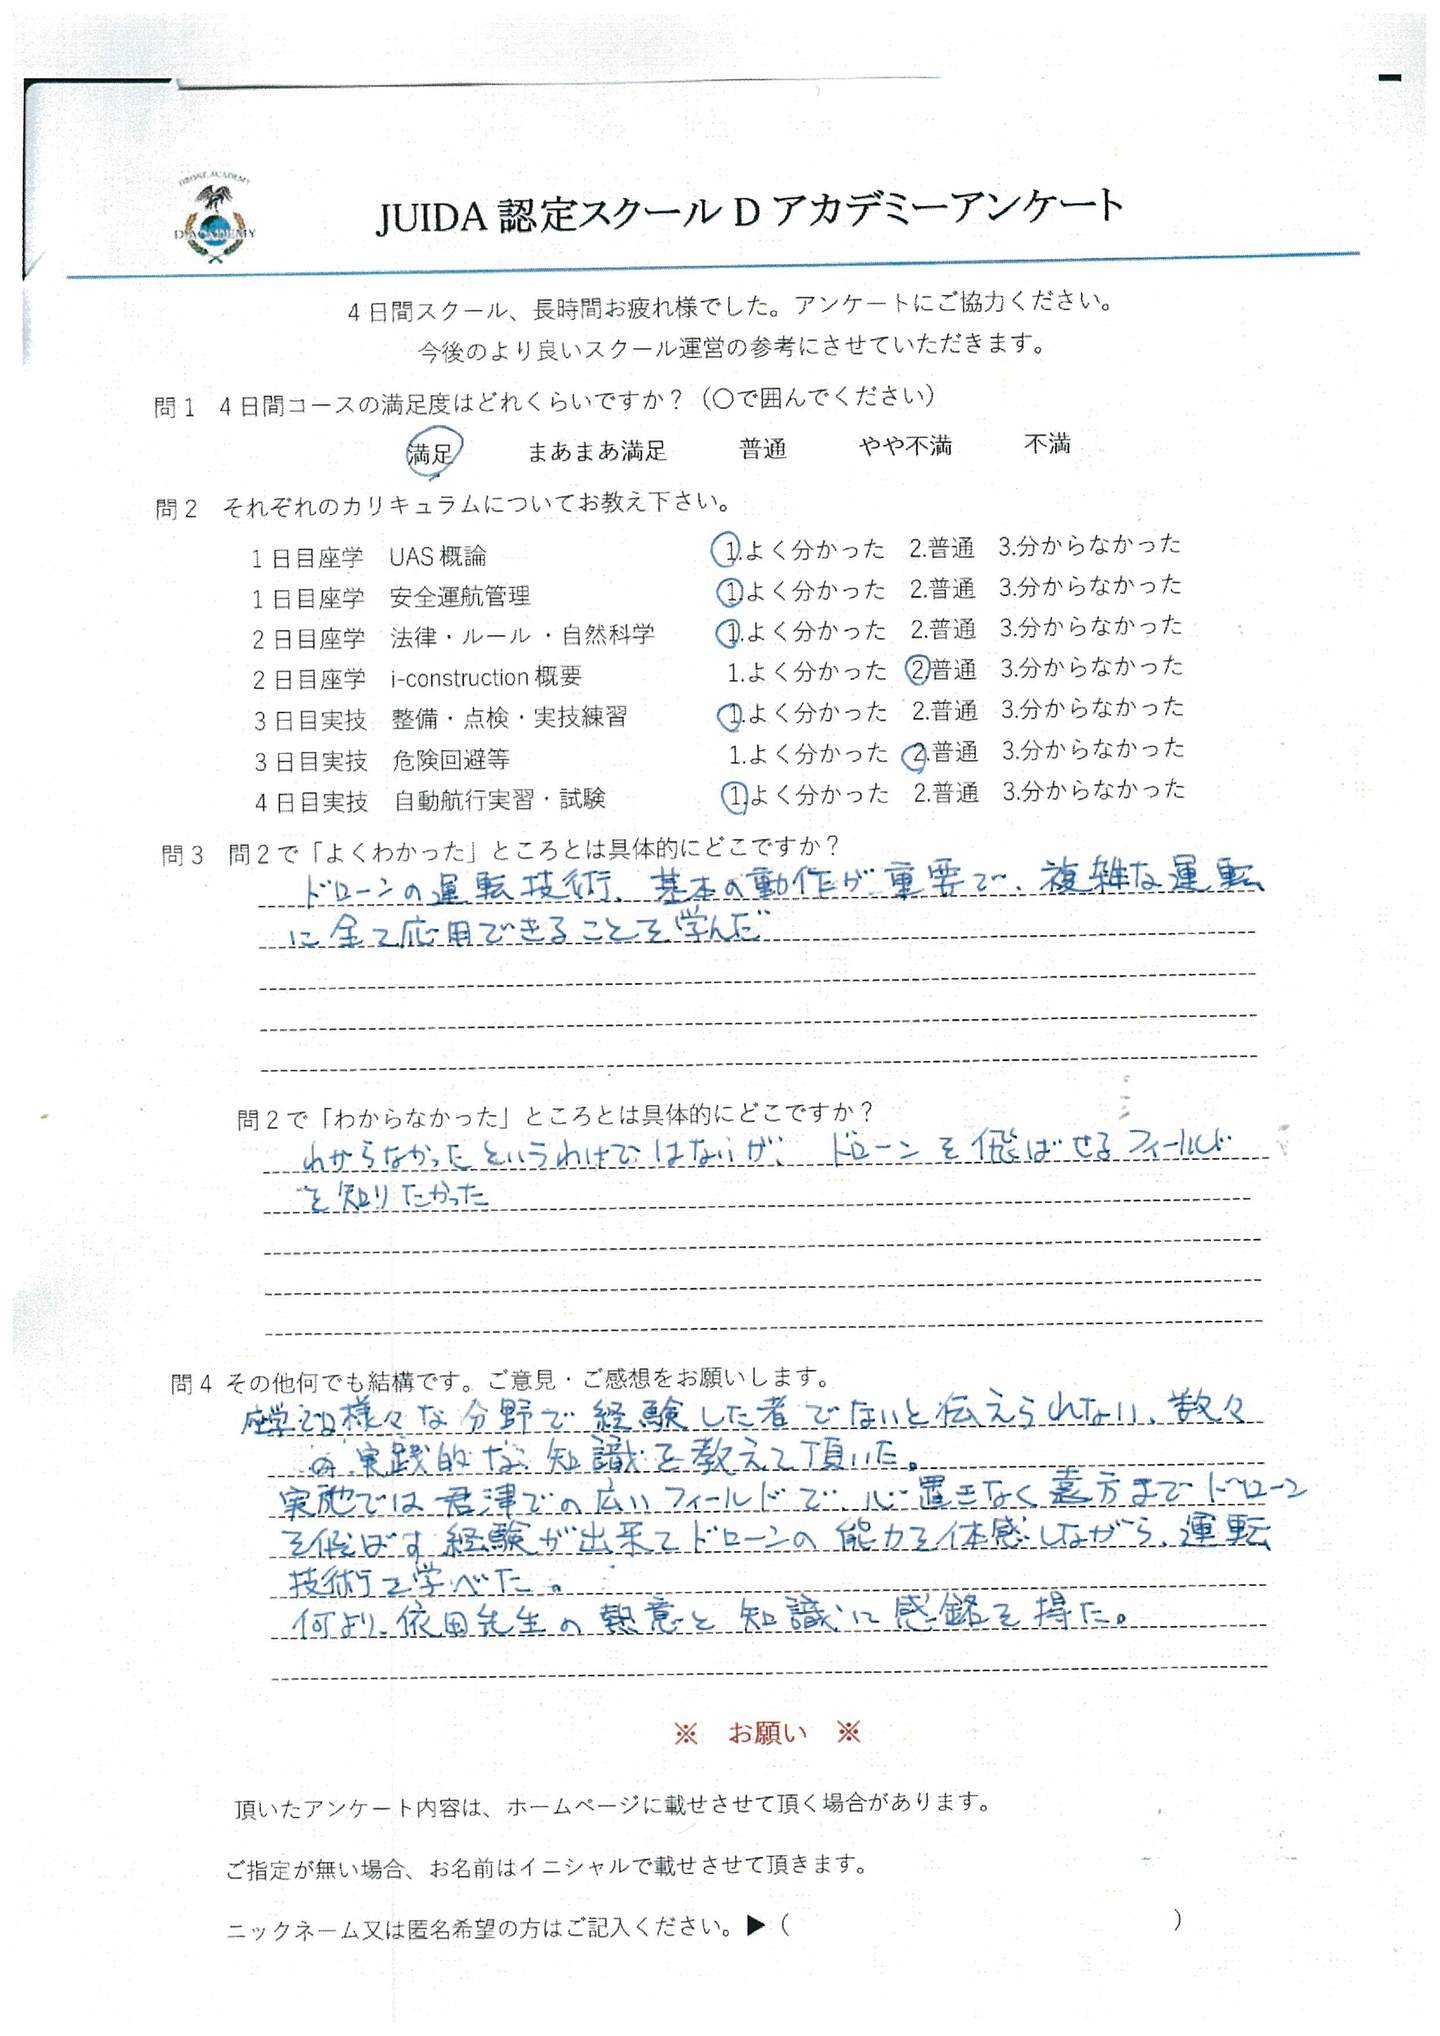 DRONE ACADEMY
D ACADEMY
JUIDA 認定スクール D アカデミーアンケート
4日間スクール、長時間お疲れ様でした。アンケートにご協力ください。
今後のより良いスクール運営の参考にさせていただきます。
問1 4日間コースの満足度はどれくらいですか？（〇で囲んでください）
満足 まあまあ満足 普通 やや不満 不満
問2 それぞれのカリキュラムについてお教え下さい。
1日目座学 UAS概論 1.よく分かった 2.普通 3.分からなかった
1日目座学 安全運航管理 1.よく分かった 2.普通 3.分からなかった
2日目座学 法律・ルール・自然科学 1.よく分かった 2.普通 3.分からなかった
2日目座学 i-construction概要 1.よく分かった 2.普通 3.分からなかった
3日目実技 整備・点検・実技練習 1.よく分かった 2.普通 3.分からなかった
3日目実技 危険回避等 1.よく分かった 2.普通 3.分からなかった
4日目実技 自動航行実習・試験 1.よく分かった 2.普通 3.分からなかった
問3 問2で「よくわかった」ところとは具体的にどこですか？
ドローンの運転技術、基本の動作が重要で、複雑な運転
に全て応用できることを学んだ
問2で「わからなかった」ところとは具体的にどこですか？
わからなかったというわけではないが、ドローンを飛ばせるフィールド
を知りたかった
問4 その他何でも結構です。ご意見・ご感想をお願いします。
座学では様々な分野で経験した者でないと伝えられない、数々
の実践的な知識を教えて頂いた。
実地では君津での広いフィールドで、心置きなく遠方までドローン
を飛ばす経験が出来てドローンの能力を体感しながら、運転
技術を学べた。
何より、依田先生の熱意と知識に感銘を得た。
※ お願い ※
頂いたアンケート内容は、ホームページに載せさせて頂く場合があります。
ご指定が無い場合、お名前はイニシャルで載せさせて頂きます。
ニックネーム又は匿名希望の方はご記入ください。▶（ ）